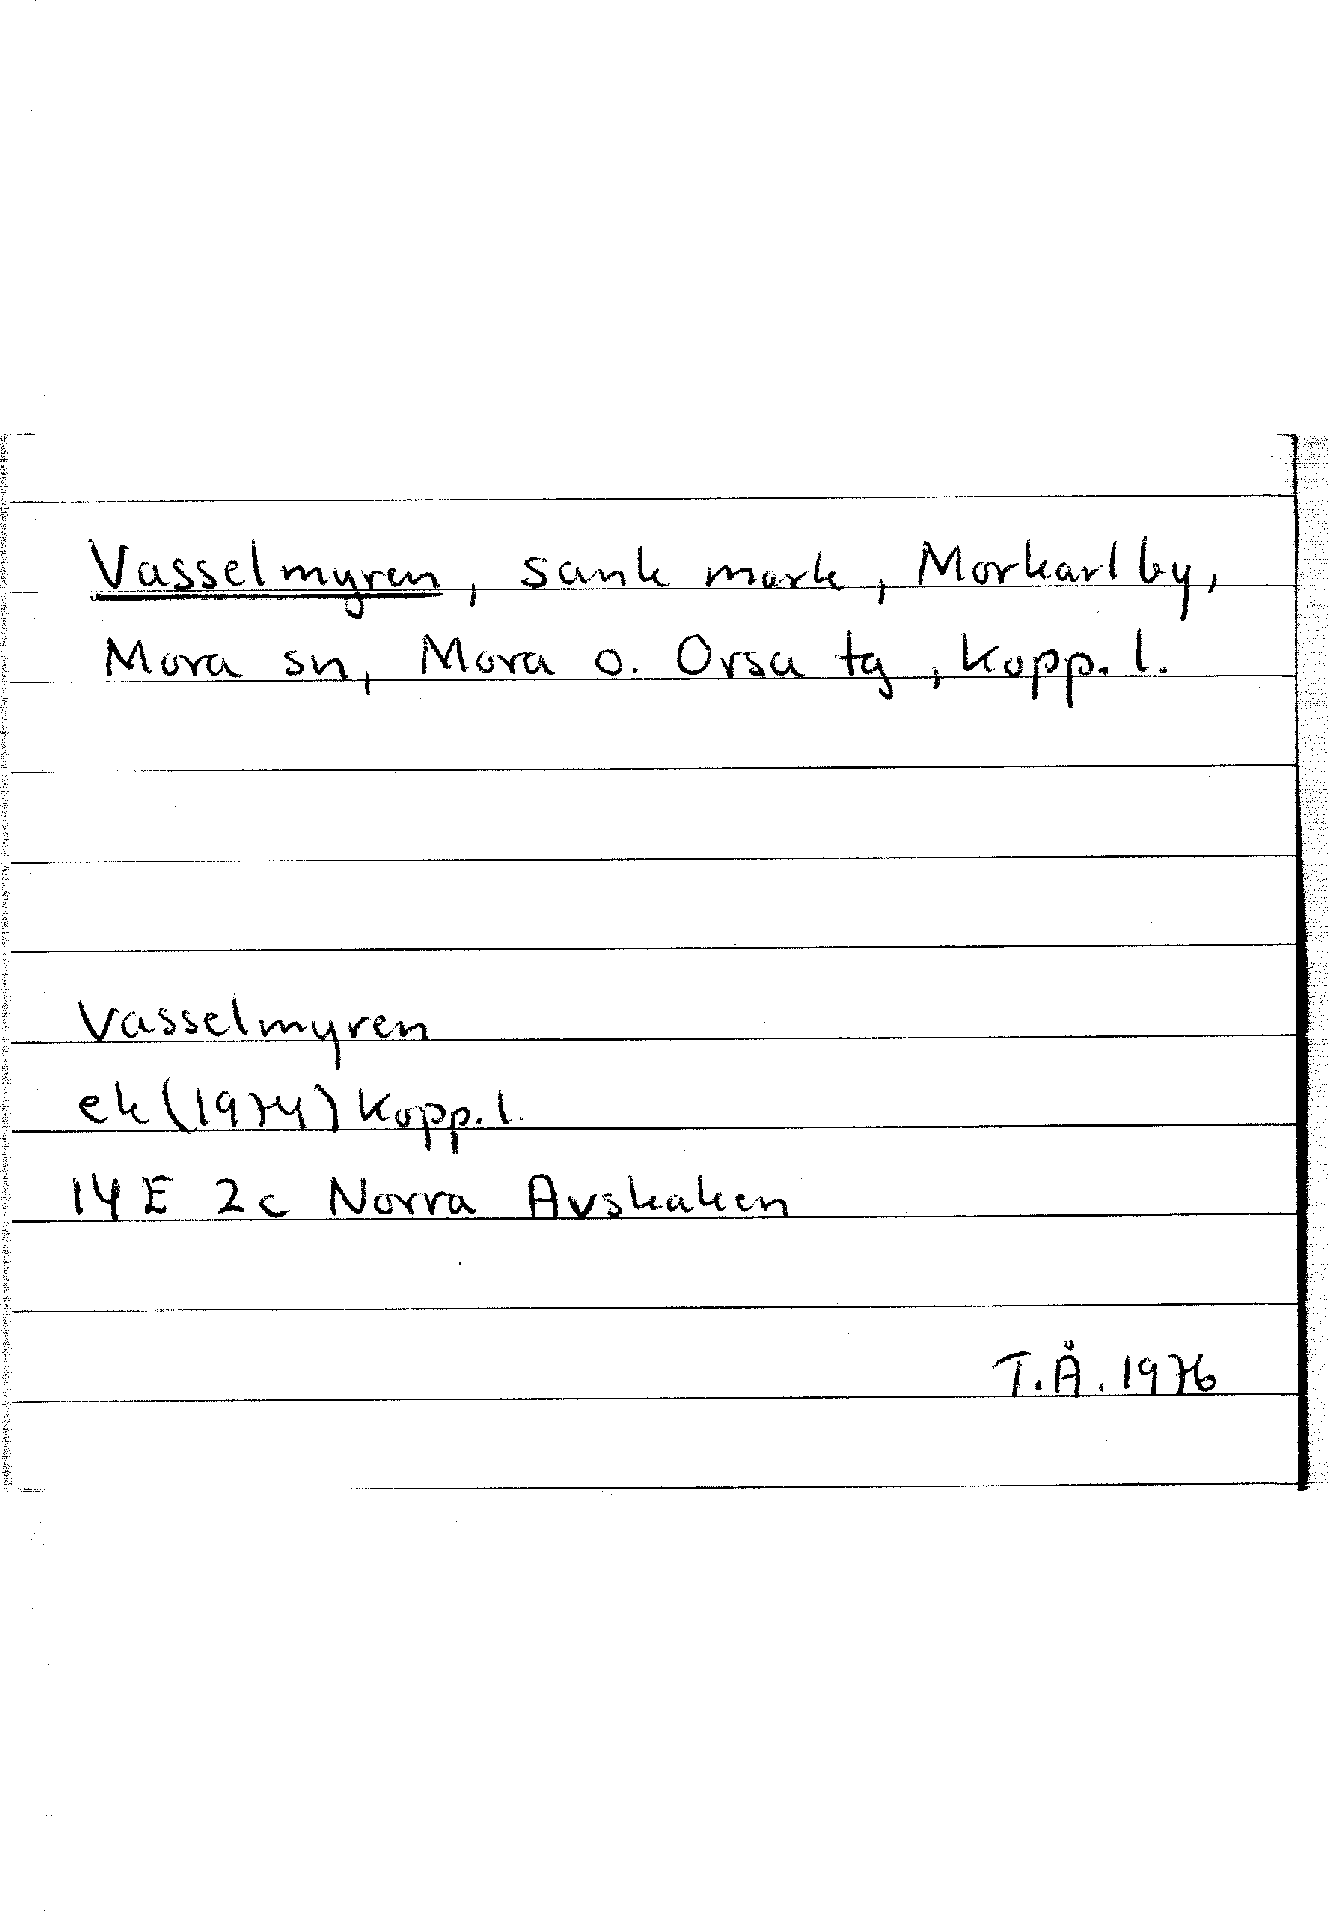 Vasselmyren, sank mark, Morkarlby,
Mora sn, Mora o. Orsa tg, Kopp. l.
Vasselmyren
ek (1974) Kopp. l.
14 E 2c Norra Avskaken
T.Å. 1976